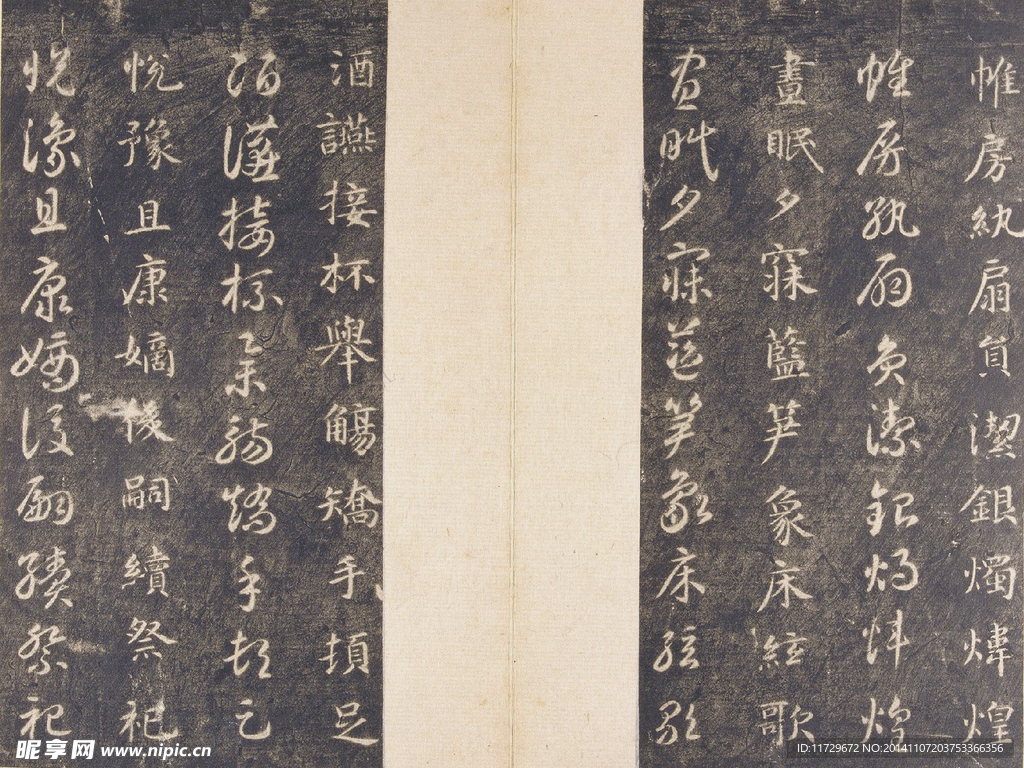 帷房紈扇員潔銀燭煒煌
帷房紈扇員潔銀燭煒煌
晝眠夕寐藍笋象床絃歌
晝眠夕寐藍笋象床絃歌
酒讌接杯舉觴矯手頓足
酒讌接杯舉觴矯手頓足
悅豫且康嫡後嗣續祭祀
悅豫且康嫡後嗣續祭祀
昵享网 www.nipic.cn
ID:11729672 NO:20141107203753366356